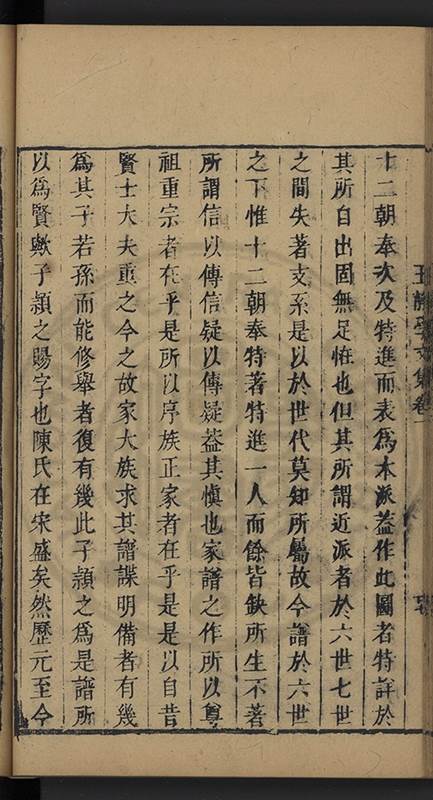 十二朝奉次及特進而表爲本派葢作此圖者特詳於
其所自出固無足恠也但其所謂近派者於六世七世
之間失著支系是以於世代莫知所屬故今譜於六世
之下惟十二朝奉特著特進一人而餘皆缺所生不著
所謂信以傳信疑以傳疑葢其慎也家譜之作所以尊
祖重宗者在乎是所以序族正家者在乎是是以自昔
賢士大夫重之今之故家大族求其譜諜明備者有幾
爲其子若孫而能修舉者復有幾此子潁之爲是譜所
以爲賢歟子潁之賜字也陳氏在宋盛矣然歷元至今